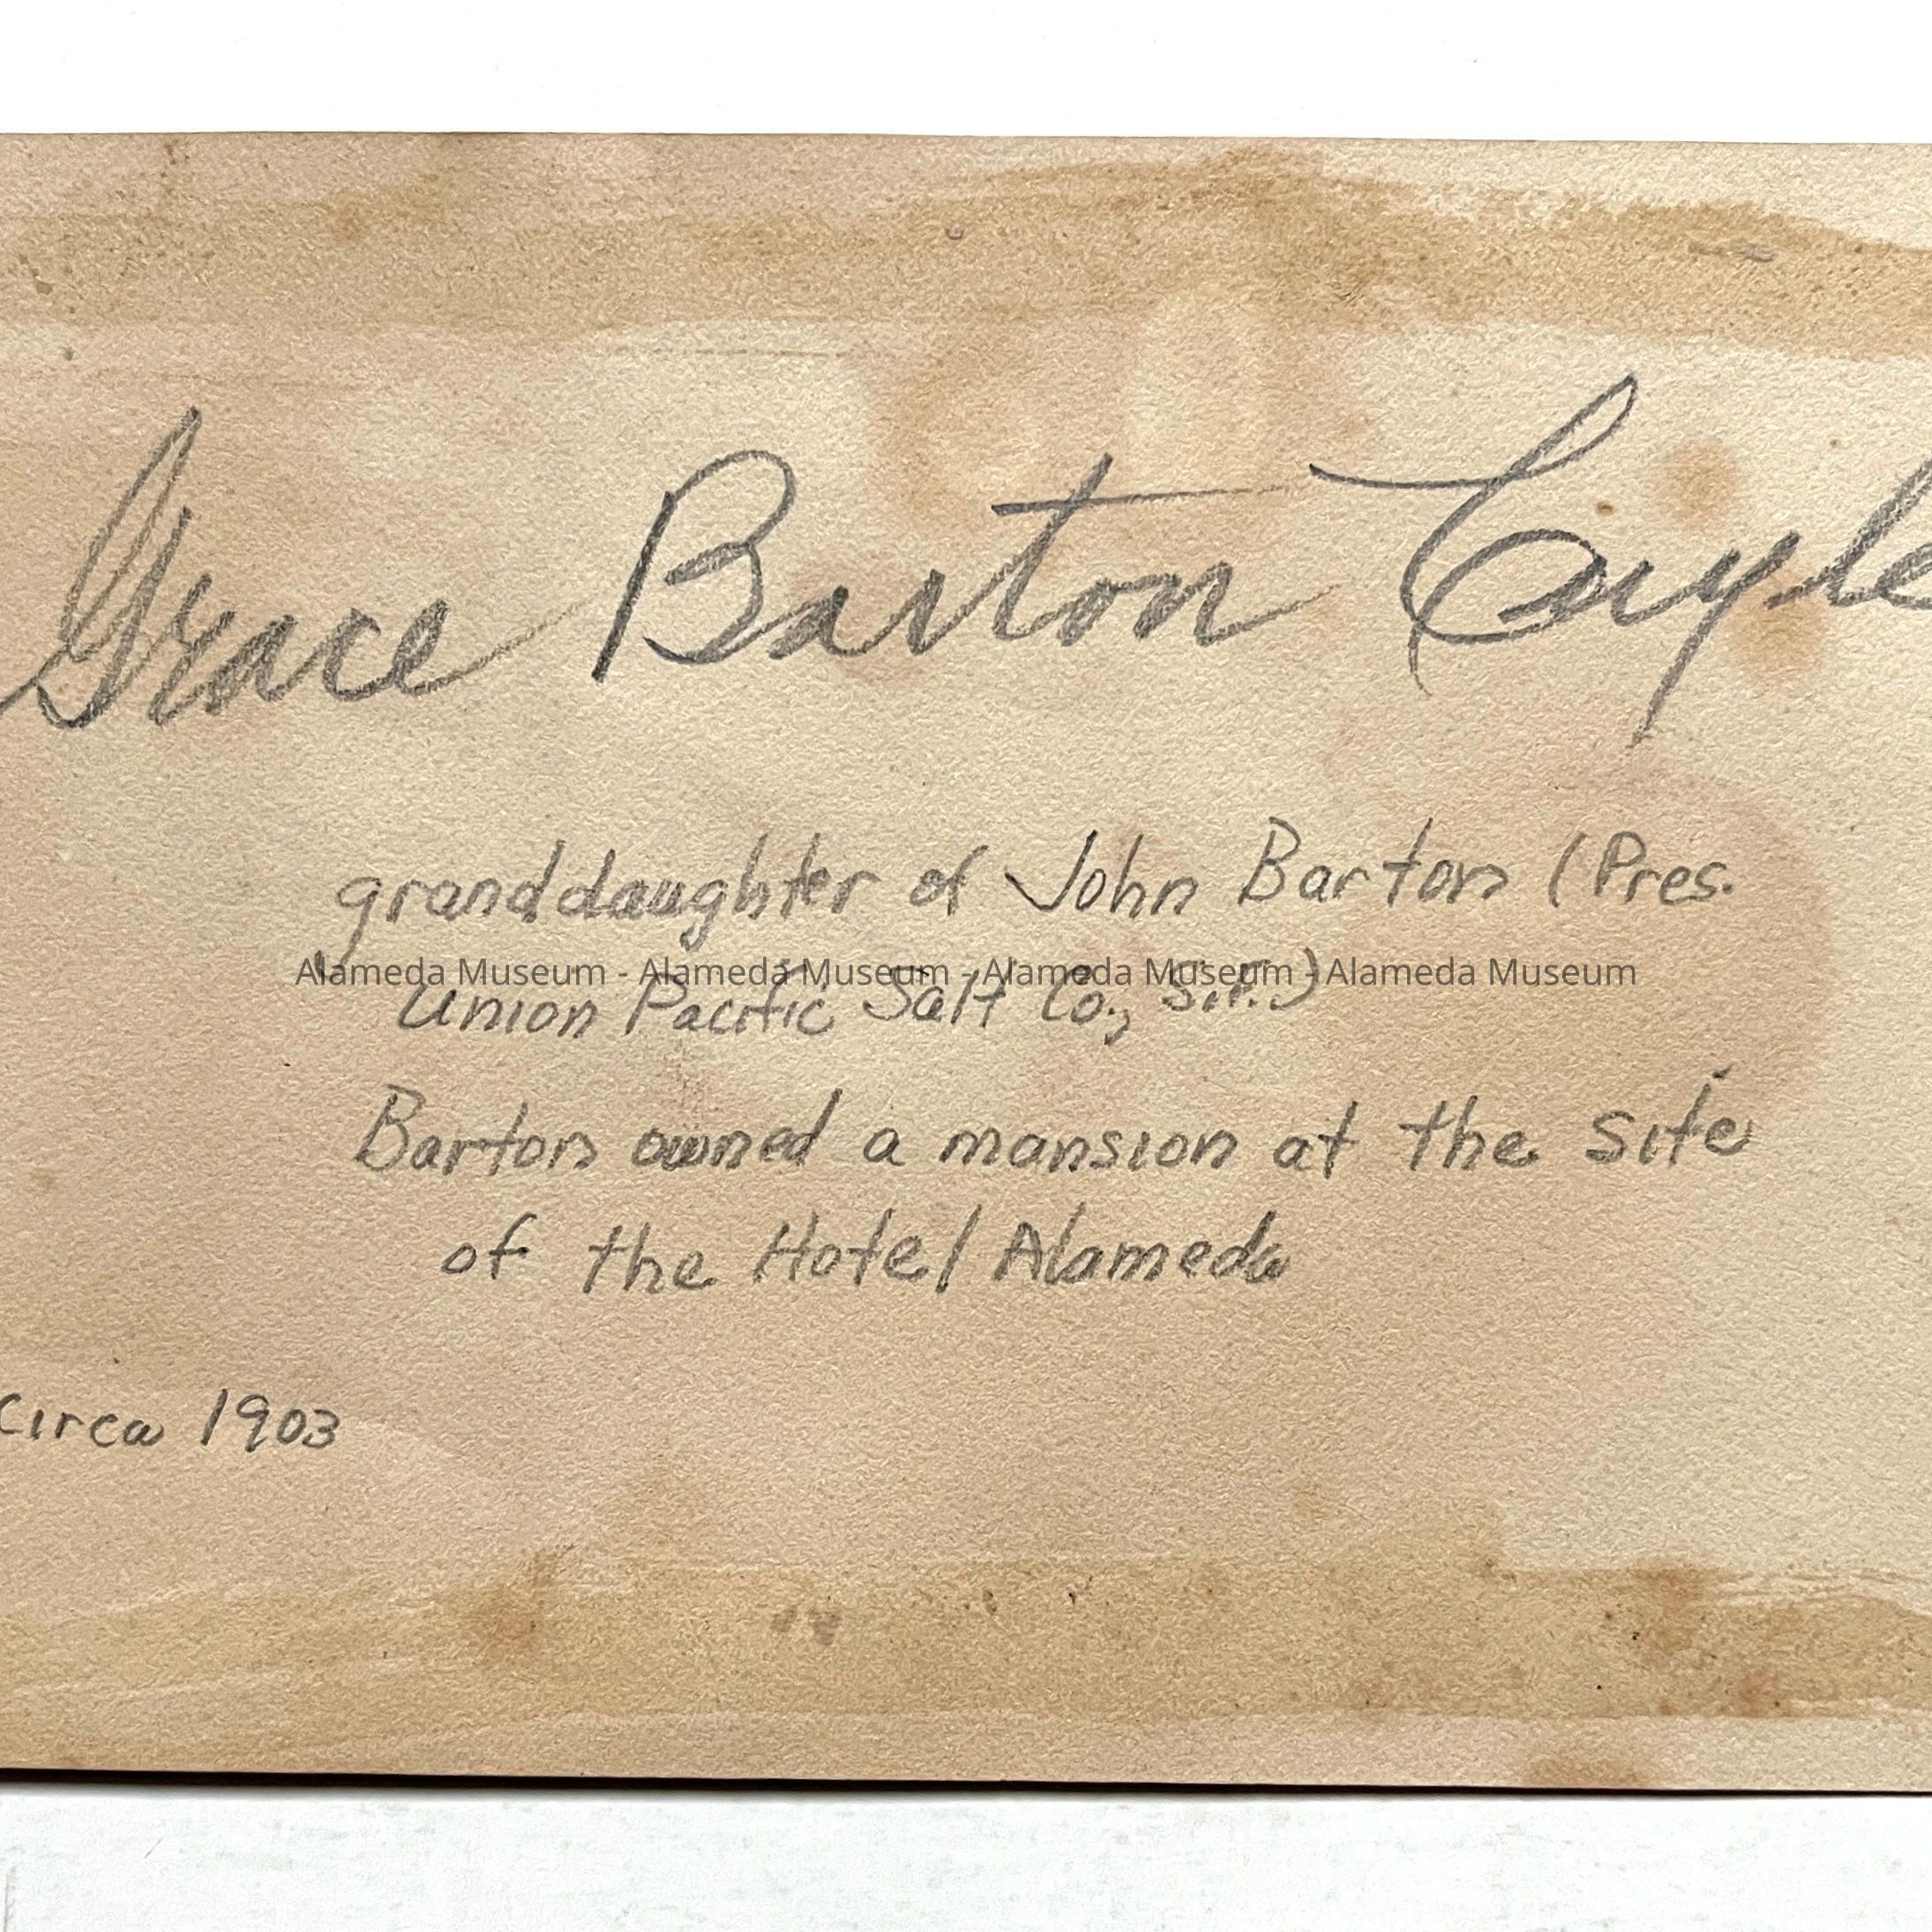 Grace Barton
granddaughter of John Barton (Pres.
Alameda Museum - Alameda Museum - Alameda Museum - Alameda Museum
Union Pacific Salt Co., S.F.)
Barton owned a mansion at the site
of the Hotel Alameda
circa 1903